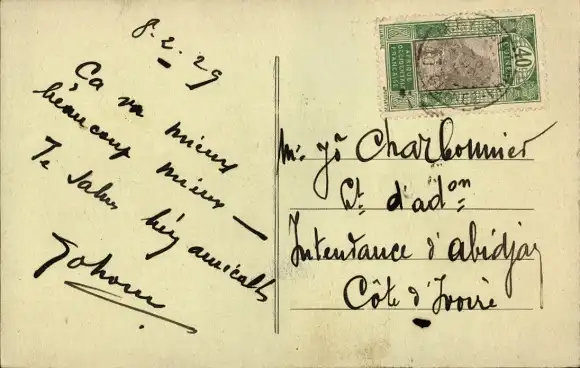 8.2.29
Ça va mieux
beaucoup mieux —
Te salue
bien amicalt
AFRIQUE
OCCIDENTALE
FRANÇAISE
40
Mr. Jh Charbonnier
Ct. d'adon
Intendance d'abidjan
Côte d'Ivoire